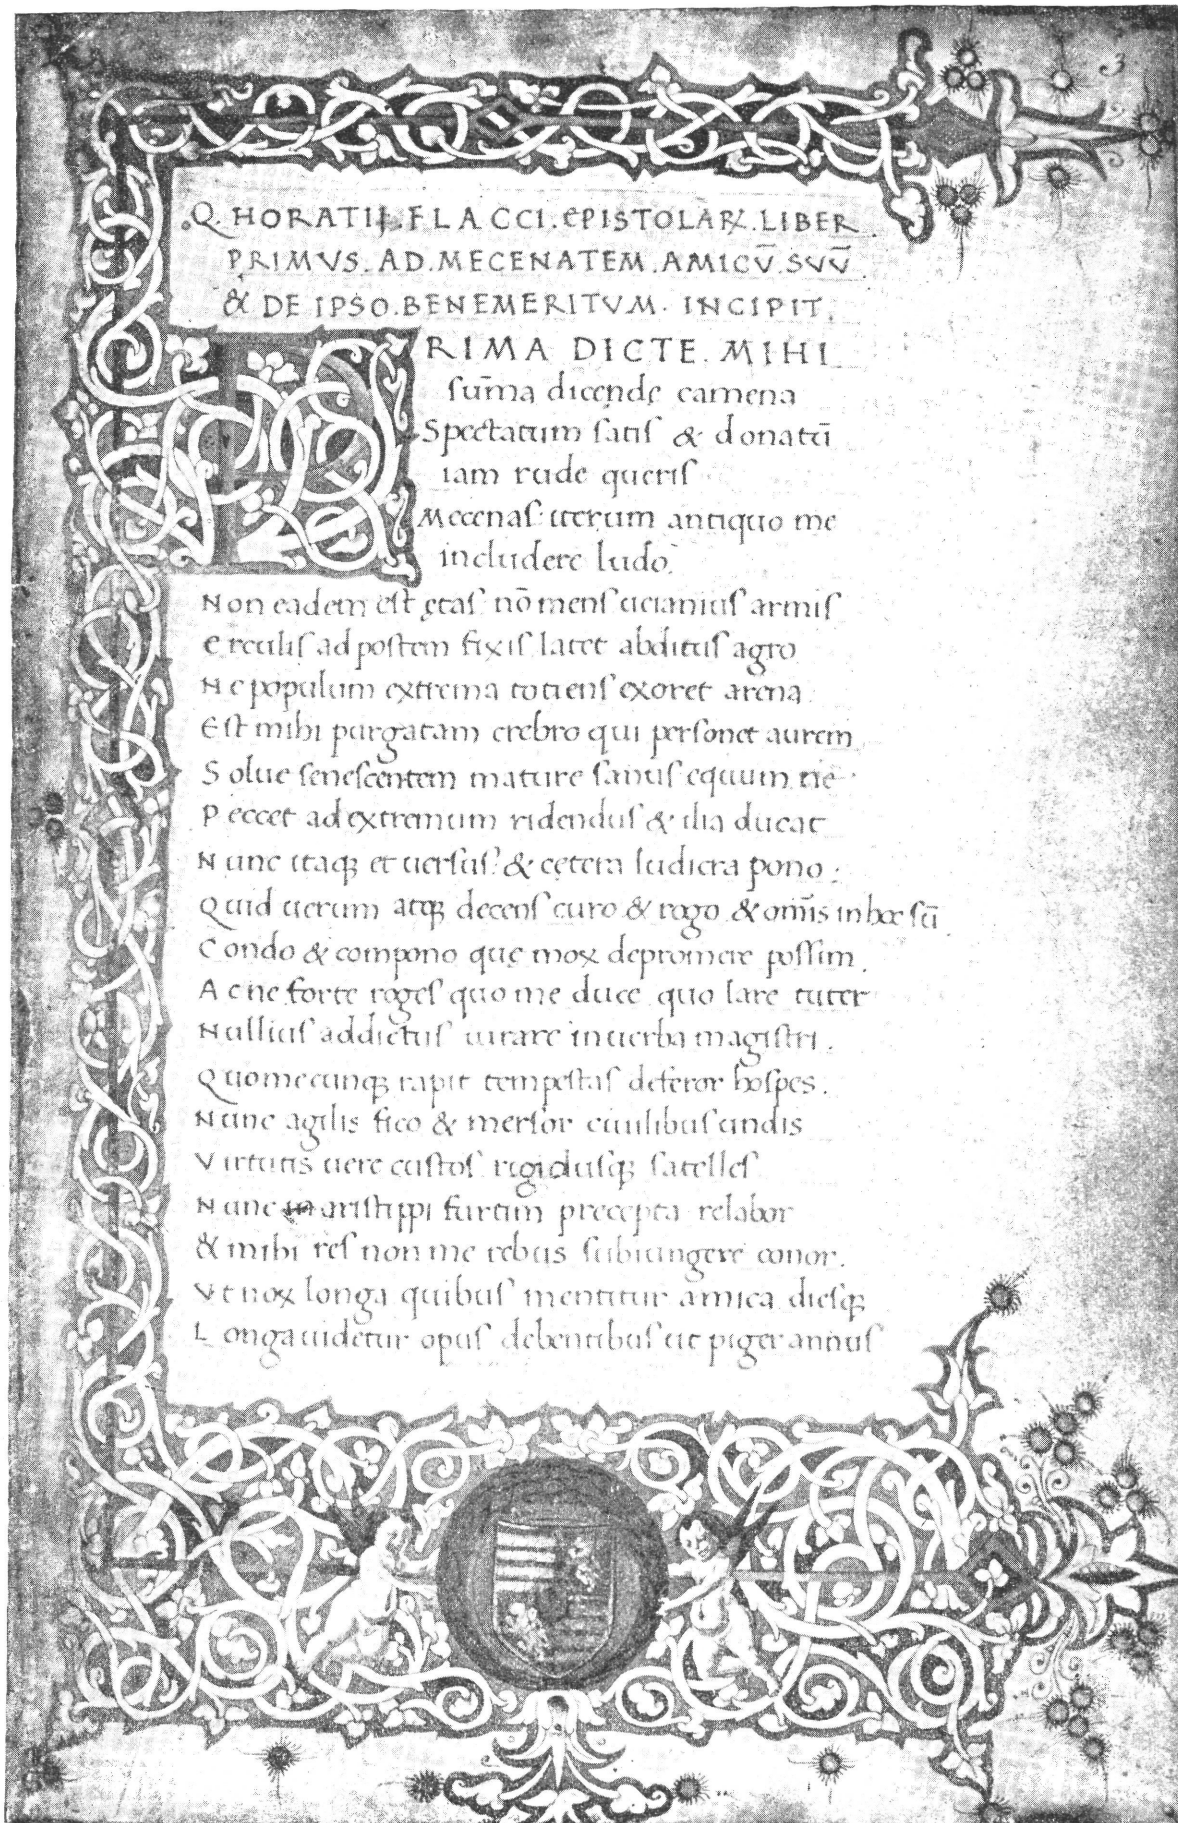 3
.Q. HORATIJ. FLACCI. EPISTOLARꝜ. LIBER
PRIMVS. AD. MECENATEM. AMICV̄. SVV̄
& DE IPSO. BENEMERITVM. INCIPIT.
PRIMA DICTE. MIHI
sūma dicende camena
Spectatum satis & donatū
iam rude queris
Mecenas: iterum antiquo me
includere ludo.
Non eadem est ętas nō mens ueianius armis
erculis ad postem fixis latet abditus agro
Ne populum extrema totiens exoret arena.
Est mihi purgatam crebro qui personet aurem
Solue senescentem mature sanus equum ne
Peccet ad extremum ridendus & ilia ducat
Nunc itaqꝫ et uersus? & cętera ludicra pono:
Quid uerum atqꝫ decens curo & rogo & omīs in hoc sū
Condo & compono quę mox depromere possim.
Ac ne forte roges quo me duce quo lare tuter
Nullius addictus iurare in uerba magistri.
Quo me cunqꝫ rapit tempestas deferor hospes.
Nunc agilis fio & mersor ciuilibus undis
Virtutis uere custos rigidusqꝫ satelles
Nunc in aristippi furtim precepta relabor
& mihi res non me rebus subiungere conor.
Vt nox longa quibus mentitur amica diesqꝫ
Longa uidetur opus debentibus ut piger annus